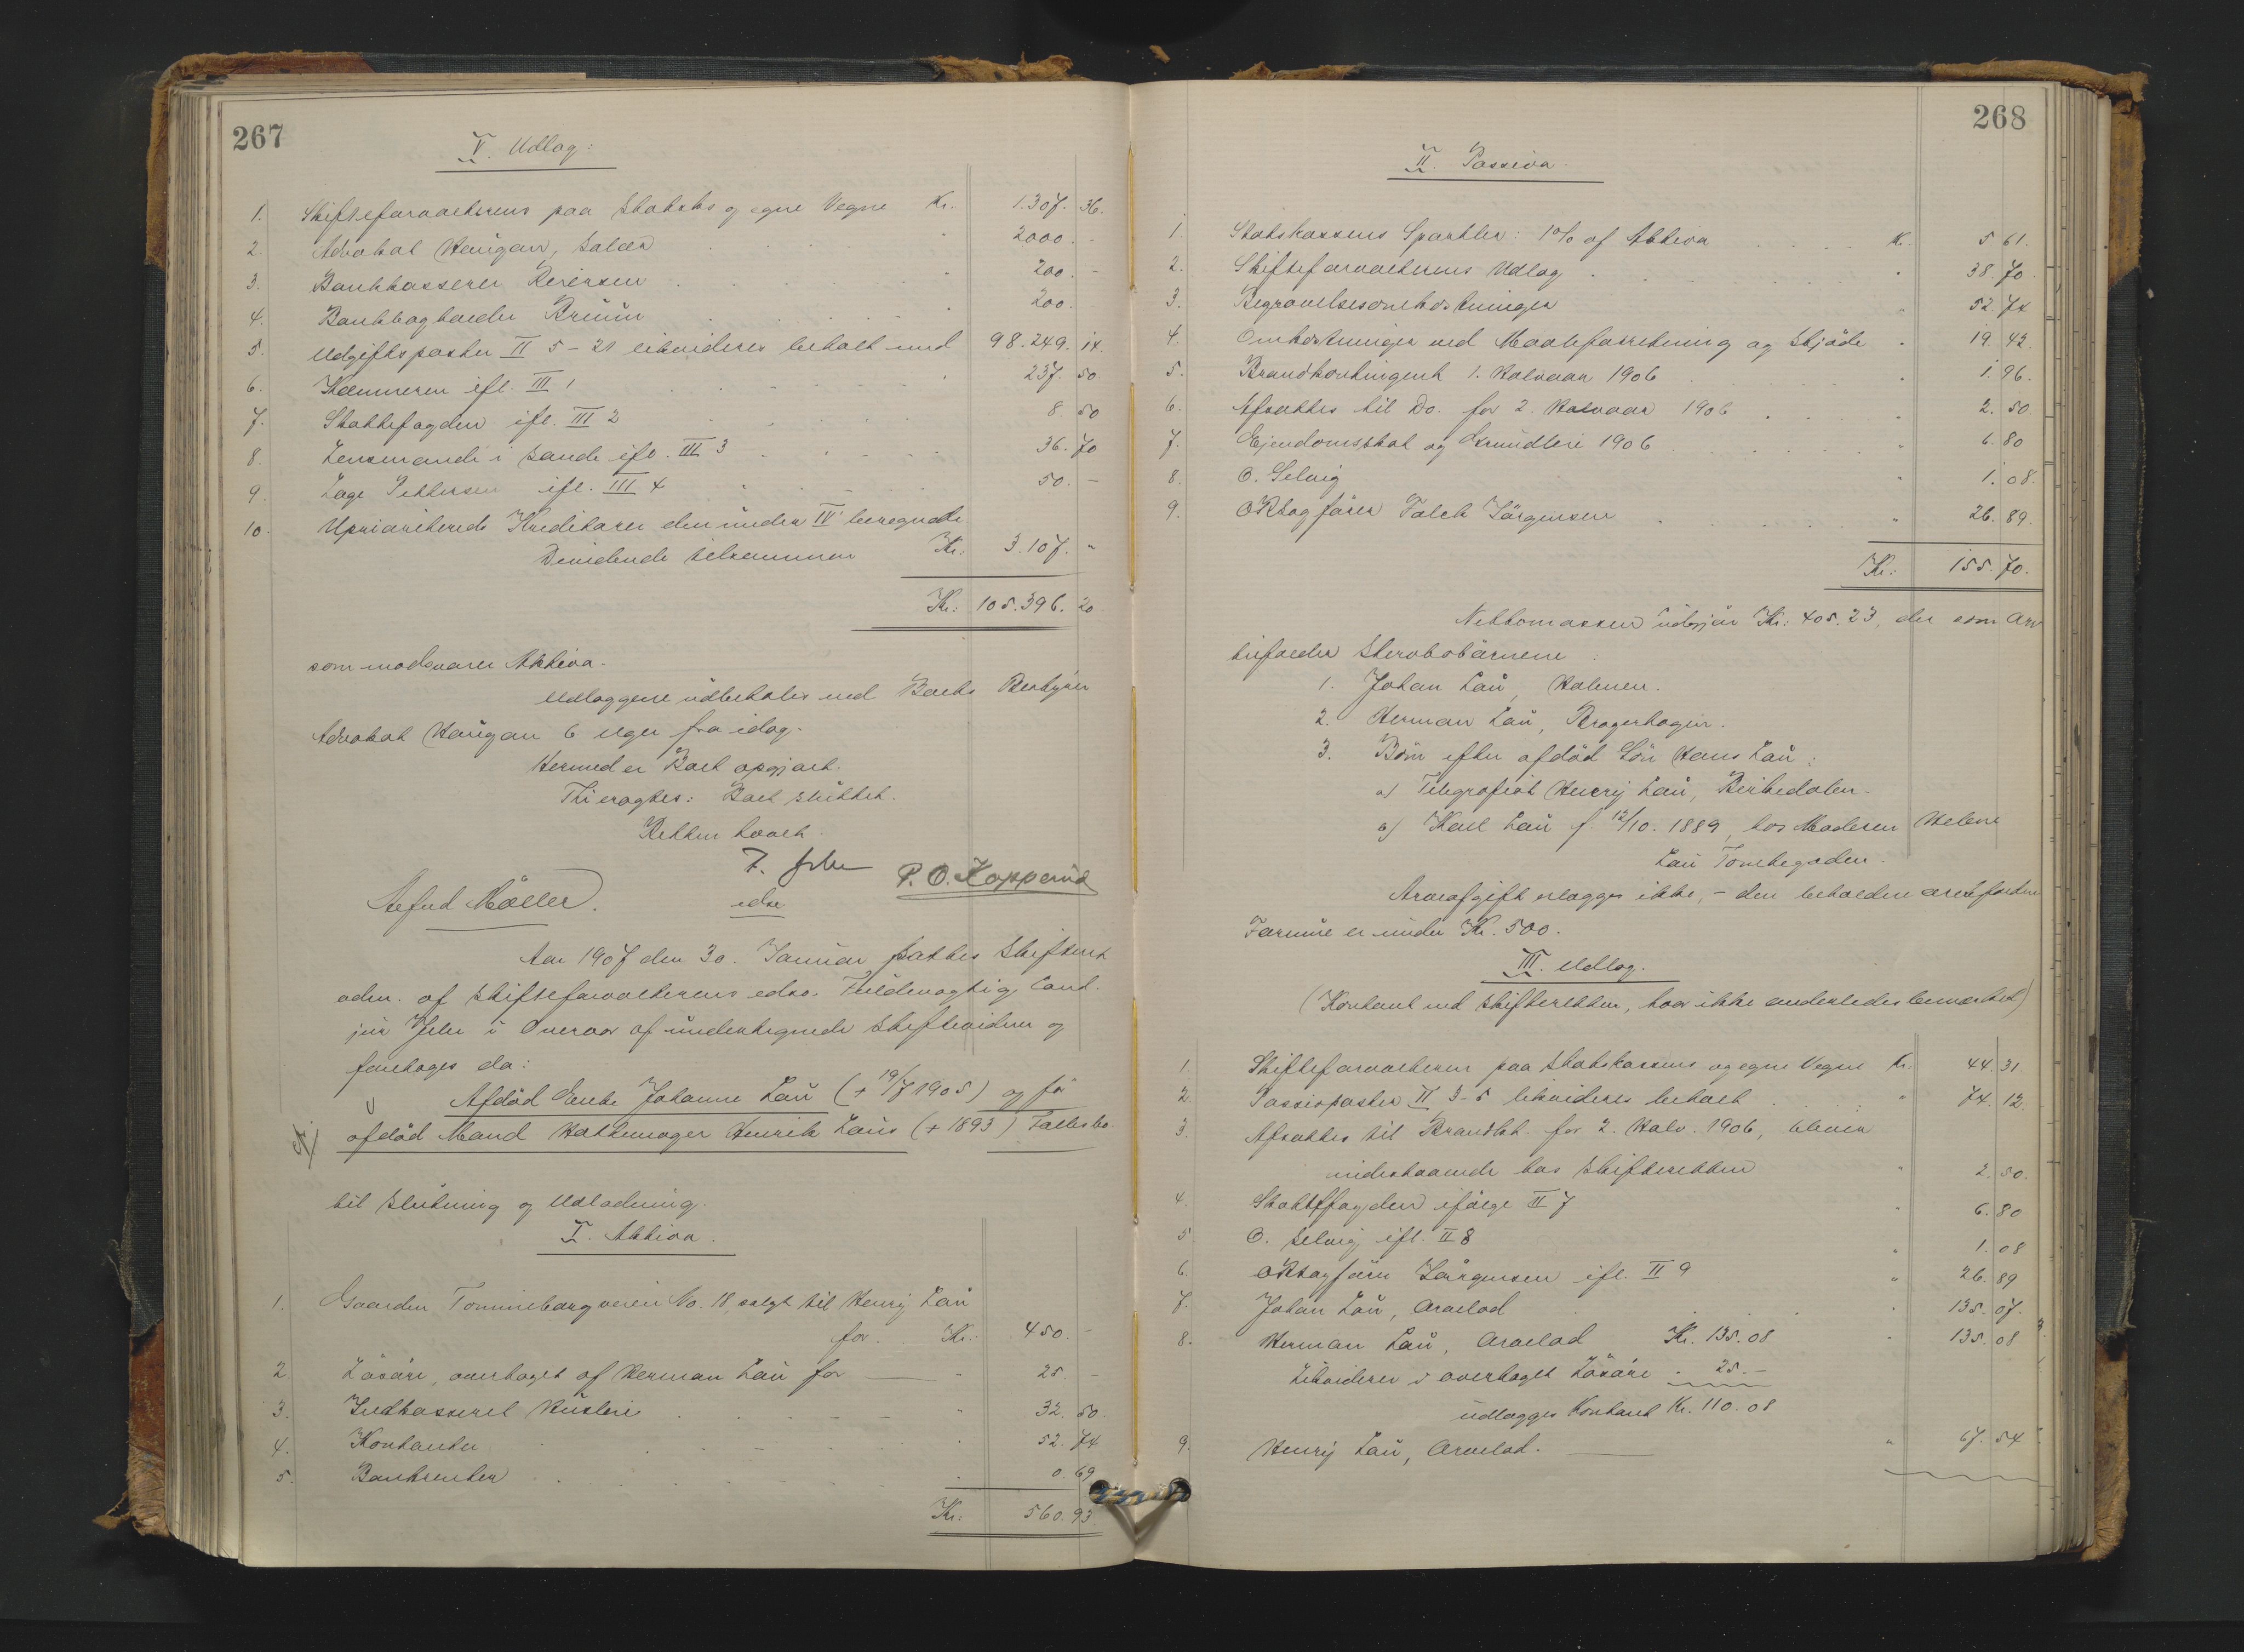 267
V. Udlæg:
1. Skifteforvalteren paa Statsks og egne Vegne Kr. 1.307. 36.
2. Advokat Haugan, Salær " 2000. -
3. Bankkasserer Reiersen " 200. -
4. Bankbogholder Bruun " 200. -
5. Udgiftsposter II 5-21 likvideres betalt med 98.249. 14.
6. Kæmneren ifl. III 1 237. 50
7. Skattefogden ifl. III 2 8. 50
8. Lensmanden i Sande ifl. III 3 36. 70
9. Lage Pettersen ifl. III 4 50. -
10. Uprioriterede Kreditorer den under IV beregnede
Dividende tilsammen Kr: 3.107. "
Kr: 105.396. 20
som modsvarer Aktiva.
Udlæggene udbetales ved Boets Bestyrer
Advokat Haugan 6 Uger fra idag.
Hermed er Boet opgjort.
Thi eragtes: Boet sluttet.
Retten hævet.
P. O. Kopperud
Møller. edsv
Aar 1907 den 30. Januar sattes Skifteret
adm. af Skifteforvalterens edsv. Fuldmægtig, Cand.
jur. i Overvær af undertegnede Skiftevidner og
foretoges da:
Afdød Enke Johanne Lau (+ 19/7 1905) og før
afdød Mand Hattemager Henrik Laus (+ 1893) Fællesbo.
til Slutning og Udlodning.
I. Aktiva.
1. Gaarden Tomineborgveien No. 18, solgt til Henry Lau
for Kr: 450. -
2. Løsøre, overtaget af Herman Lau for " 25. -
3. Indkasseret Husleie " 32. 50.
4. Kontanter " 52. 74
5. Bankrenter " 0. 69
Kr: 560. 93
268
II. Passiva.
1. Statskassens Sportler: 1% af Aktiva Kr. 5 61.
2. Skifteforvalterens Udlæg " 38. 70
3. Begravelsesomkostninger " 52. 74
4. Omkostninger ved Maaleforretning og Skjøde " 19. 42.
5. Brandkontingent 1. Halvaar 1906 " 1. 96.
6. Afsættes til Do. for 2. Halvaar 1906 " 2. 50.
7. Ejendomsskat og Grundleie 1906 " 6. 80
8. O. Selvig " 1. 08.
9. ORsagfører Falck Jørgensen " 26. 89.
Kr: 155. 70.
Nettomassen udgjør Kr: 405.23, der som Arv
tilfalder Stervbobørnene:
1. Johan Lau, Holmen.
2. Herman Lau, Bragerhagen.
3. Børn efter afdød Søn Hans Lau:
a) Telegrafist Henry Lau, Birkedalen.
b) Karl Lau f. 12/10. 1889, hos Moderen Helene
Lau Tomtegaden.
Arveafgift erlægges ikke, - den beholdne arvefaldne
Formue er under Kr. 500.
III. Udlæg.
(Kontant ved Skifteretten, hvor ikke anderledes bemærket)
1. Skifteforvalteren paa Statskassens og egne Vegne Kr. 44. 31
2. Passivposter II 3-5 likvideres betalt " 74. 12.
3. Afsættes til Brandkt. for 2. Halv. 1906, bliver
indestaaende hos Skifteretten " 2. 50.
4. Skattefogden ifølge II 7 " 6. 80
5 O. Selvig ifl. II 8 " 1. 08
6. ORsagfører Jørgensen ifl. II 9 " 26. 89
7. Johan Lau, Arvelod " 135. 07.
8. Herman Lau, Arvelod Kr. 135.08 " 135. 08
Likviderer i overtaget Løsøre " 25.-
udlægges Kontant Kr. 110.08
9. Henry Lau, Arvelod. " 67. 54